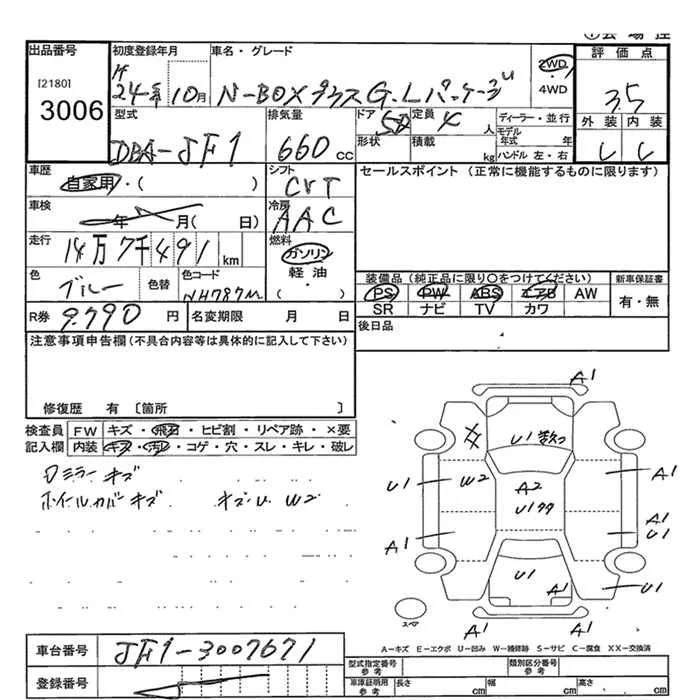 出品番号 初度登録年月 車名・グレード 2WD 評価点
[2180] 3006
24年 10月 N-BOXプラス G.Lパッケージ 4WD 3.5
型式 排気量 ドア 定員 ディーラー・並行 外装 内装
DBA-JF1 660cc 5D 4人 モデル年式 年
形状 積載 kg ハンドル 左・右
車歴 シフト セールスポイント (正常に機能するものに限ります)
自家用・( ) CVT
車検 年 月( 日) 冷房 AAC
走行 14万7千491km 燃料 ガソリン
軽油
( )
色 ブルー 色替 色コード NH787M
装備品 (純正品に限り○をつけてください) 新車保証書
PS PW ABS エアB AW 有・無
SR ナビ TV カワ
R券 9,790円 名変期限 月 日 後日品
注意事項申告欄 (不具合内容等は具体的に記入して下さい)
修復歴 有 〔箇所 〕
検査員 FW キズ・飛石・ヒビ割・リペア跡・×要
記入欄 内装 キズ・汚れ・コゲ・穴・スレ・キレ・破レ
ミラーキズ
ホイールカバキズ キズ・U W2
A1
U1
U1 W2 A2 A1
A1 A1 U1
U1 A1 U1
スペア A1 A1
A-キズ E-エクボ U-凹み W-補修跡 S-サビ C-腐食 XX-交換済
車台番号 JF1-3007671
型式指定番号 参考 類別区分番号 参考
登録番号 車庫証明用 参考 長さ cm 幅 cm 高さ cm